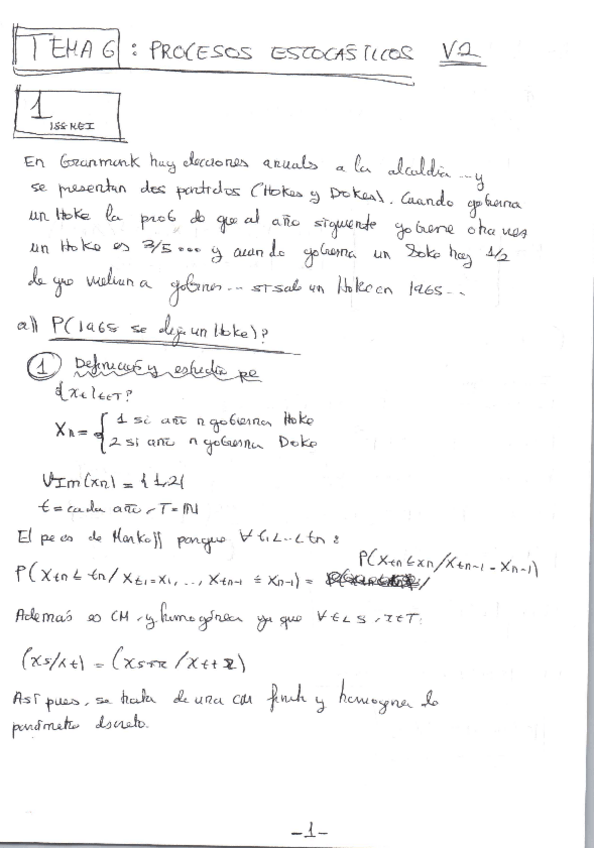 TEMA 6 : PROCESOS ESTOCÁSTICOS V2
1
En Granmunk hay elecciones anuals a la alcaldia ... y
se presentan dos partidos (Hokes y Dokes). Cuando gobierna
un Hoke la prob de que al año siguiente gobierne otra ves
un Hoke es 3/5 ... y cuando gobierna un Doke hay 1/2
de que vuelvan a gobernar ... si salió un Hoke en 1965 ...
a)) P(1965 se elija un Hoke)?
1 Definición y estudio pe
{Xt}t∈T?
Xn = { 1 si año n gobierna Hoke
2 si año n gobierna Doke
Im(xn) = {1,2}
t = cada año, T = ℕ
El pe es de Markoff porque ∀ t1<..<tn :
P(Xtn ≤ tn / Xt1=x1, ..., Xtn-1 = Xn-1) = P(Xtn ≤ xn / Xtn-1 = Xn-1)
Además es CM y homogénea ya que ∀ t<s, r∈T:
(Xs/Xt) = (Xs+r / Xt+r)
Así pues, se trata de una CM finita y homogenea de
parámetro discreto.
-1-